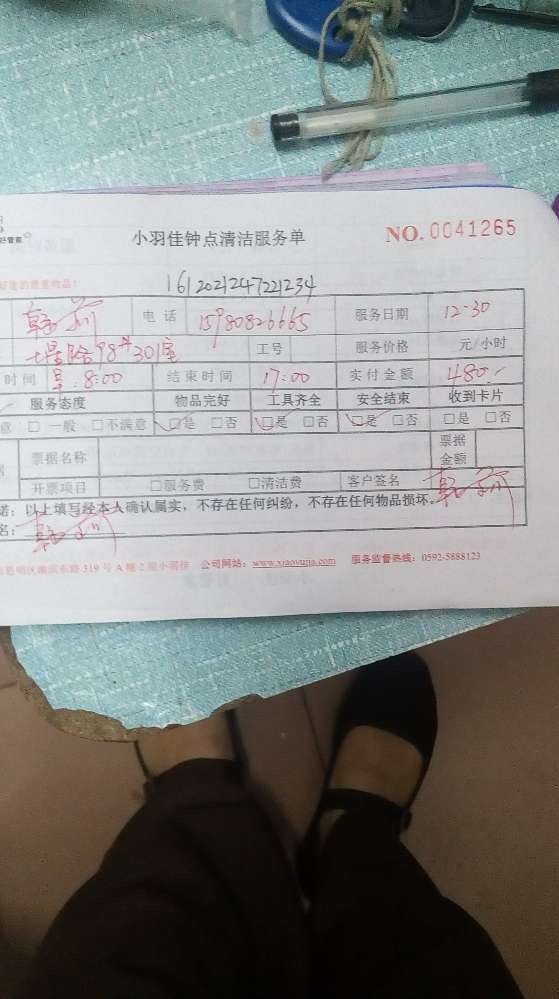 好管家
小羽佳钟点清洁服务单 NO. 0041265
161202124722​1234
电 话 15980826665 服务日期 12-30
98# 301室 工号 服务价格 元/小时
时间 早:8:00 结束时间 17:00 实付金额 480.-
服务态度 物品完好 工具齐全 安全结束 收到卡片
意 □ 一般 □不满意 ☑是 □否 ☑是 □否 ☑是 □否 □是 □否
票据名称 票据金额
开票项目 □服务费 □清洁费 客户签名
诺：以上填写经本人确认属实，不存在任何纠纷，不存在任何物品损坏。
名：
思明区湖滨东路 319 号 A 幢 2 层小羽佳 公司网站：www.xiaoyujia.com 服务监督热线：0592-5888123